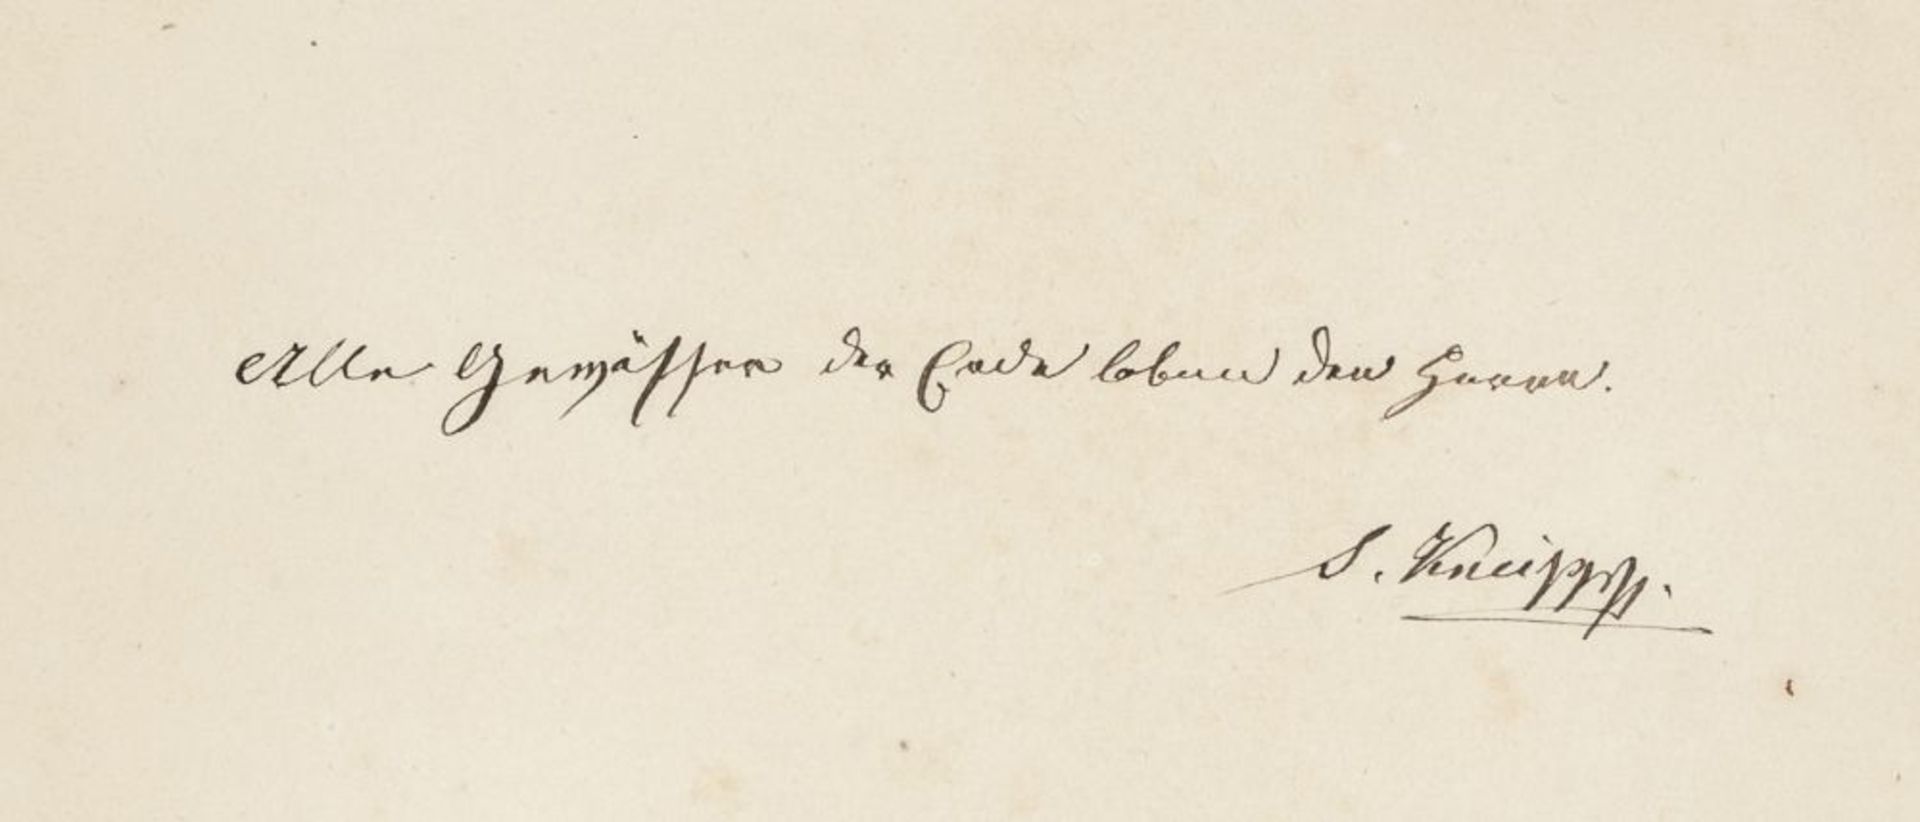 Alle Gewässer der Erde loben den Herrn.
S. Kneipp.